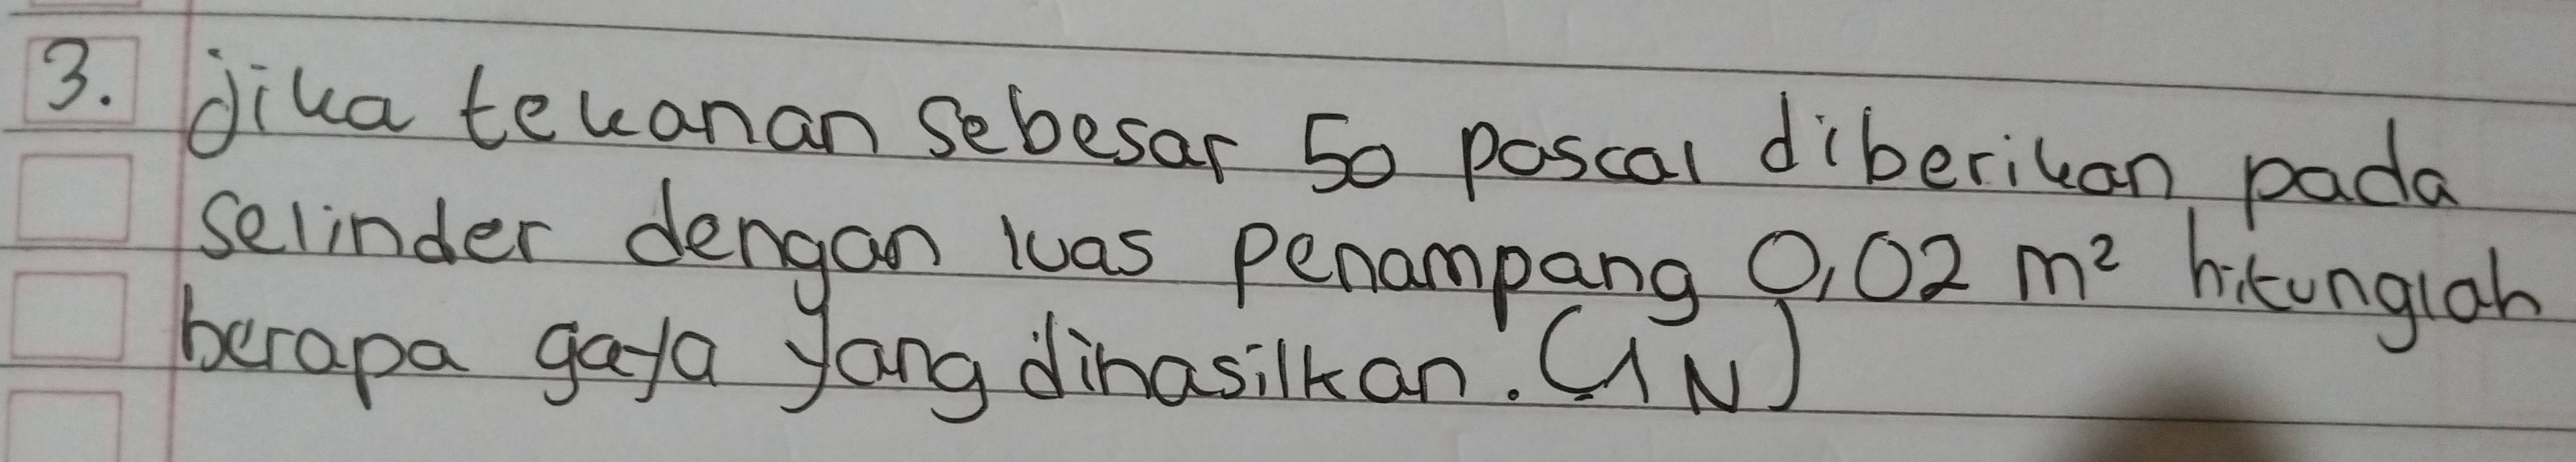 3. jika tekanan sebesar 50 pascal diberikan pada
selinder dengan luas penampang 0,02 m² hitunglah
berapa gaya yang dihasilkan. (1 N)